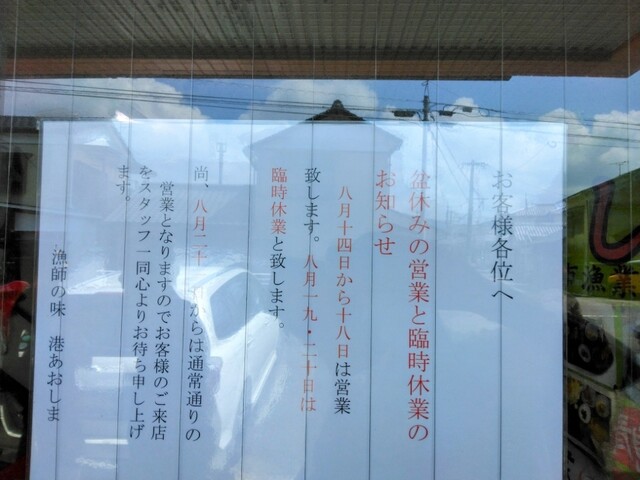 お客様各位へ
盆休みの営業と臨時休業の
お知らせ
八月十四日から十八日は営業
致します。八月一九・二十日は
臨時休業と致します。
尚、八月二十 からは通常通りの
営業となりますのでお客様のご来店
をスタッフ一同心よりお待ち申し上げ
ます。
漁師の味 港あおしま
漁業